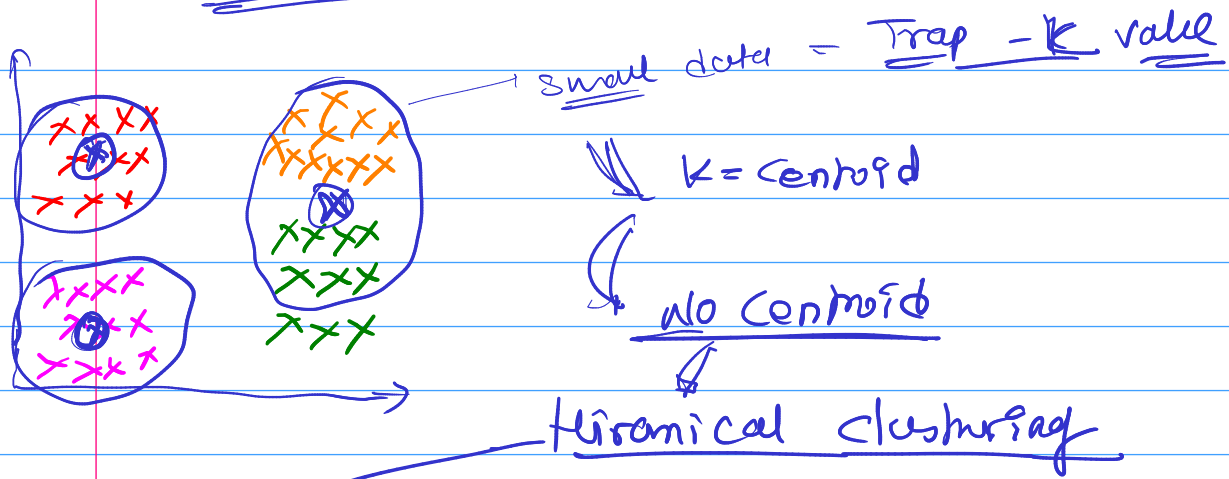 small data = Trap - K value
K = Centroid
No Centroid
Hirarnical clusturing